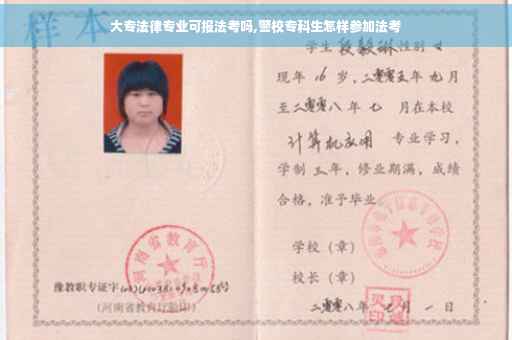 大专法律专业可报法考吗,警校专科生怎样参加法考
样本
学生 段毅琳 性别 女
现年 16 岁，二零零五年 九 月
至二零零八年 七 月在本校
计算机应用 专业学习，
学制 三 年，修业期满，成绩
合格，准予毕业
学校（章）
校长（章）
二零零八年 月 一 日
河南省教育厅
豫教职专证字
（河南省教育厅验印）